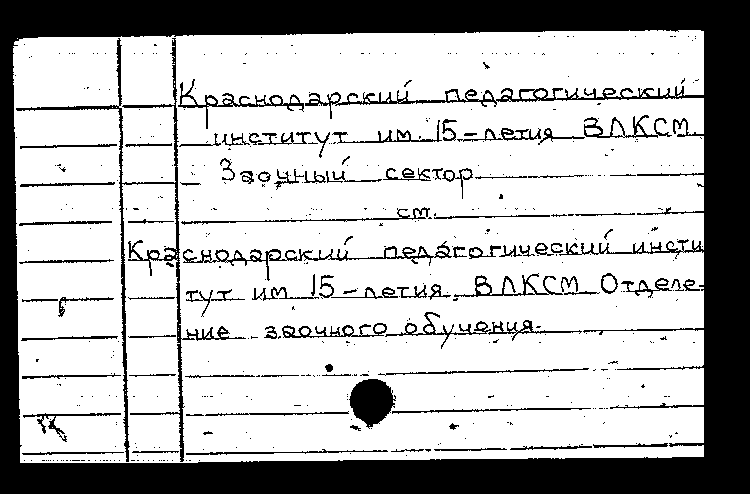 Краснодарский педагогический
институт им. 15-летия ВЛКСМ.
Заочный сектор
см.
Краснодарский педагогический инсти
тут им 15-летия, ВЛКСМ Отделе-
ние заочного обучения.